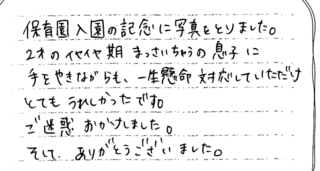 保育園入園の記念に写真をとりました。
2才のイヤイヤ期 まっさいちゅうの息子に
手をやきながらも、一生懸命 対応していただけ
とても うれしかったです。
ご迷惑 おかけしました。
そして、ありがとうございました。